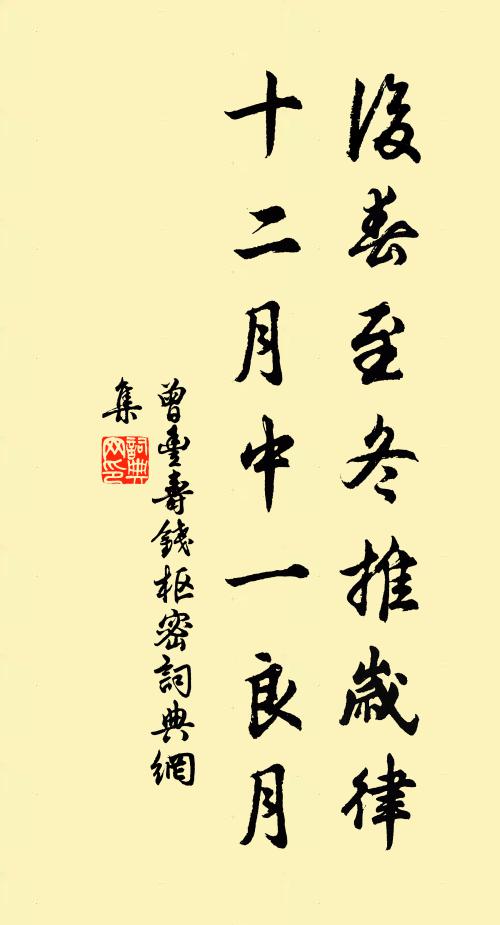 後春至冬推歲律
十二月中一良月
曾豊壽錢枢密詞典網
集
詞典网印